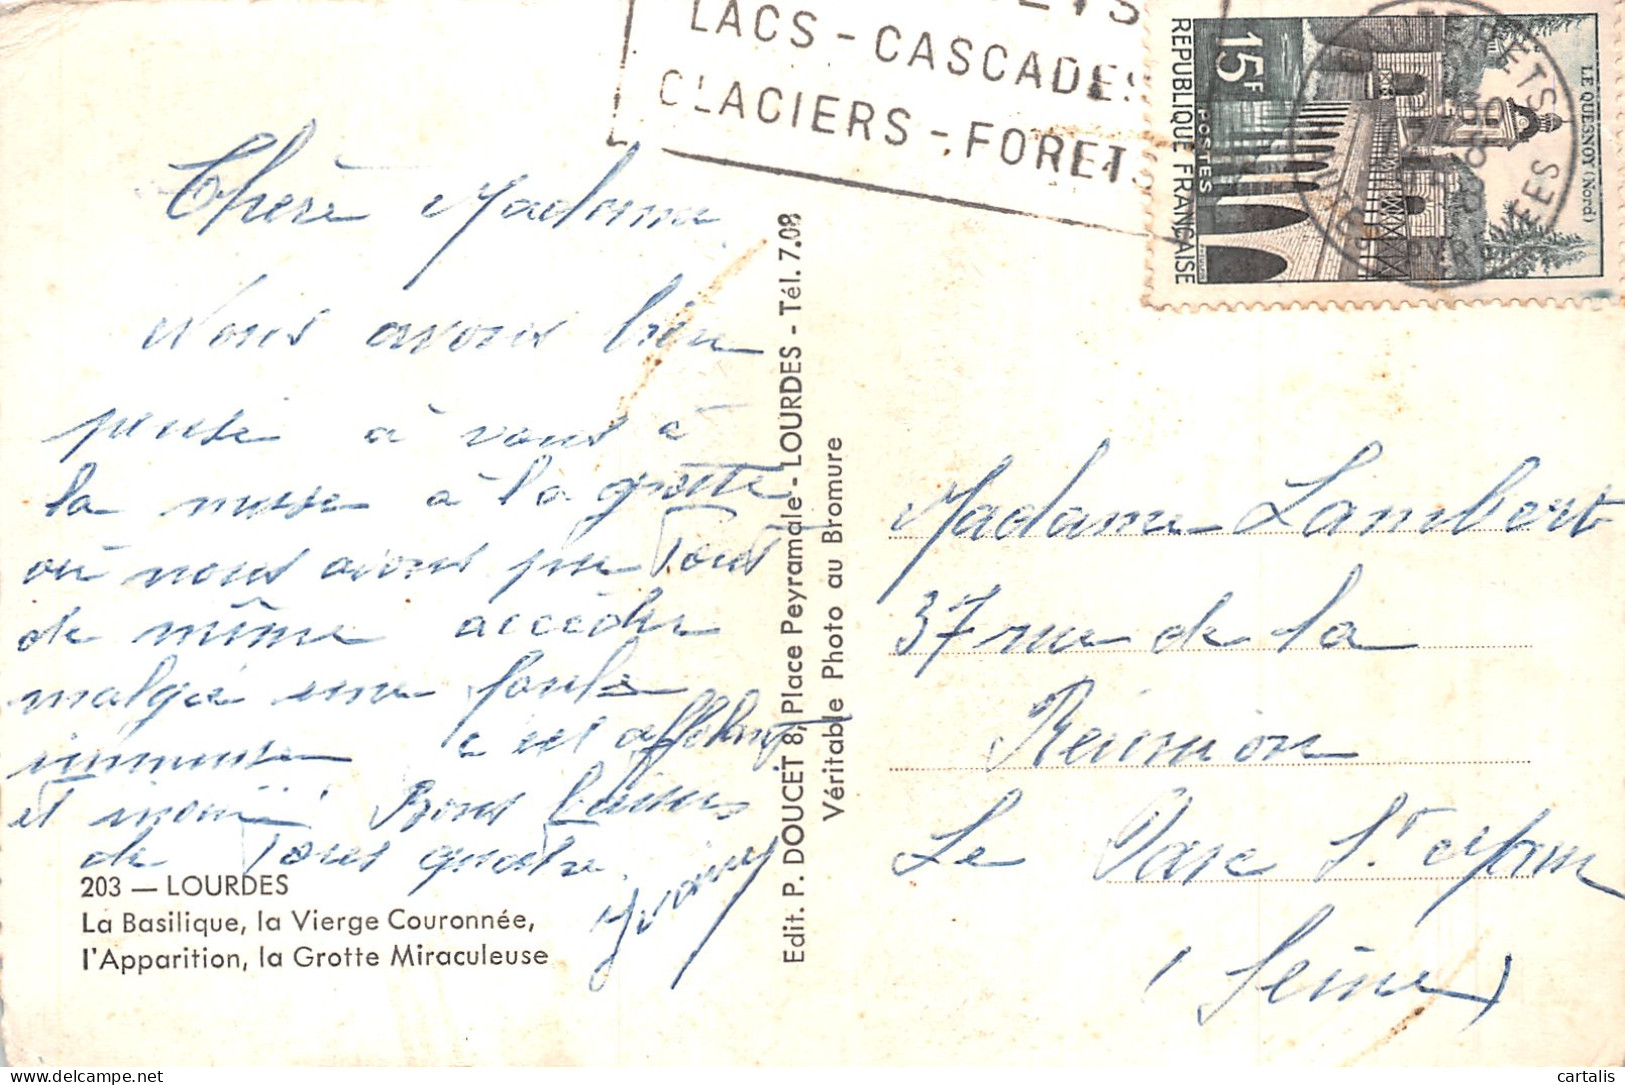 LACS - CASCADES
GLACIERS - FORETS
15F
POSTES
REPUBLIQUE FRANÇAISE
LE QUESNOY (Nord)
Chère Madame
Nous avons bien
pensé à vous à
la messe à la grotte
où nous avons pu tout
de même accéder
malgré une foule
immense c'est affolant
et inouïe! Bons baisers
de Tous quatre.
203 — LOURDES
La Basilique, la Vierge Couronnée,
l'Apparition, la Grotte Miraculeuse
Edit. P. DOUCET 8, Place Peyramale - LOURDES - Tél. 7.08
Véritable Photo au Bromure
Madame Lambert
37 rue de la
Réunion
Le Parc St
(Seine)
cartalis